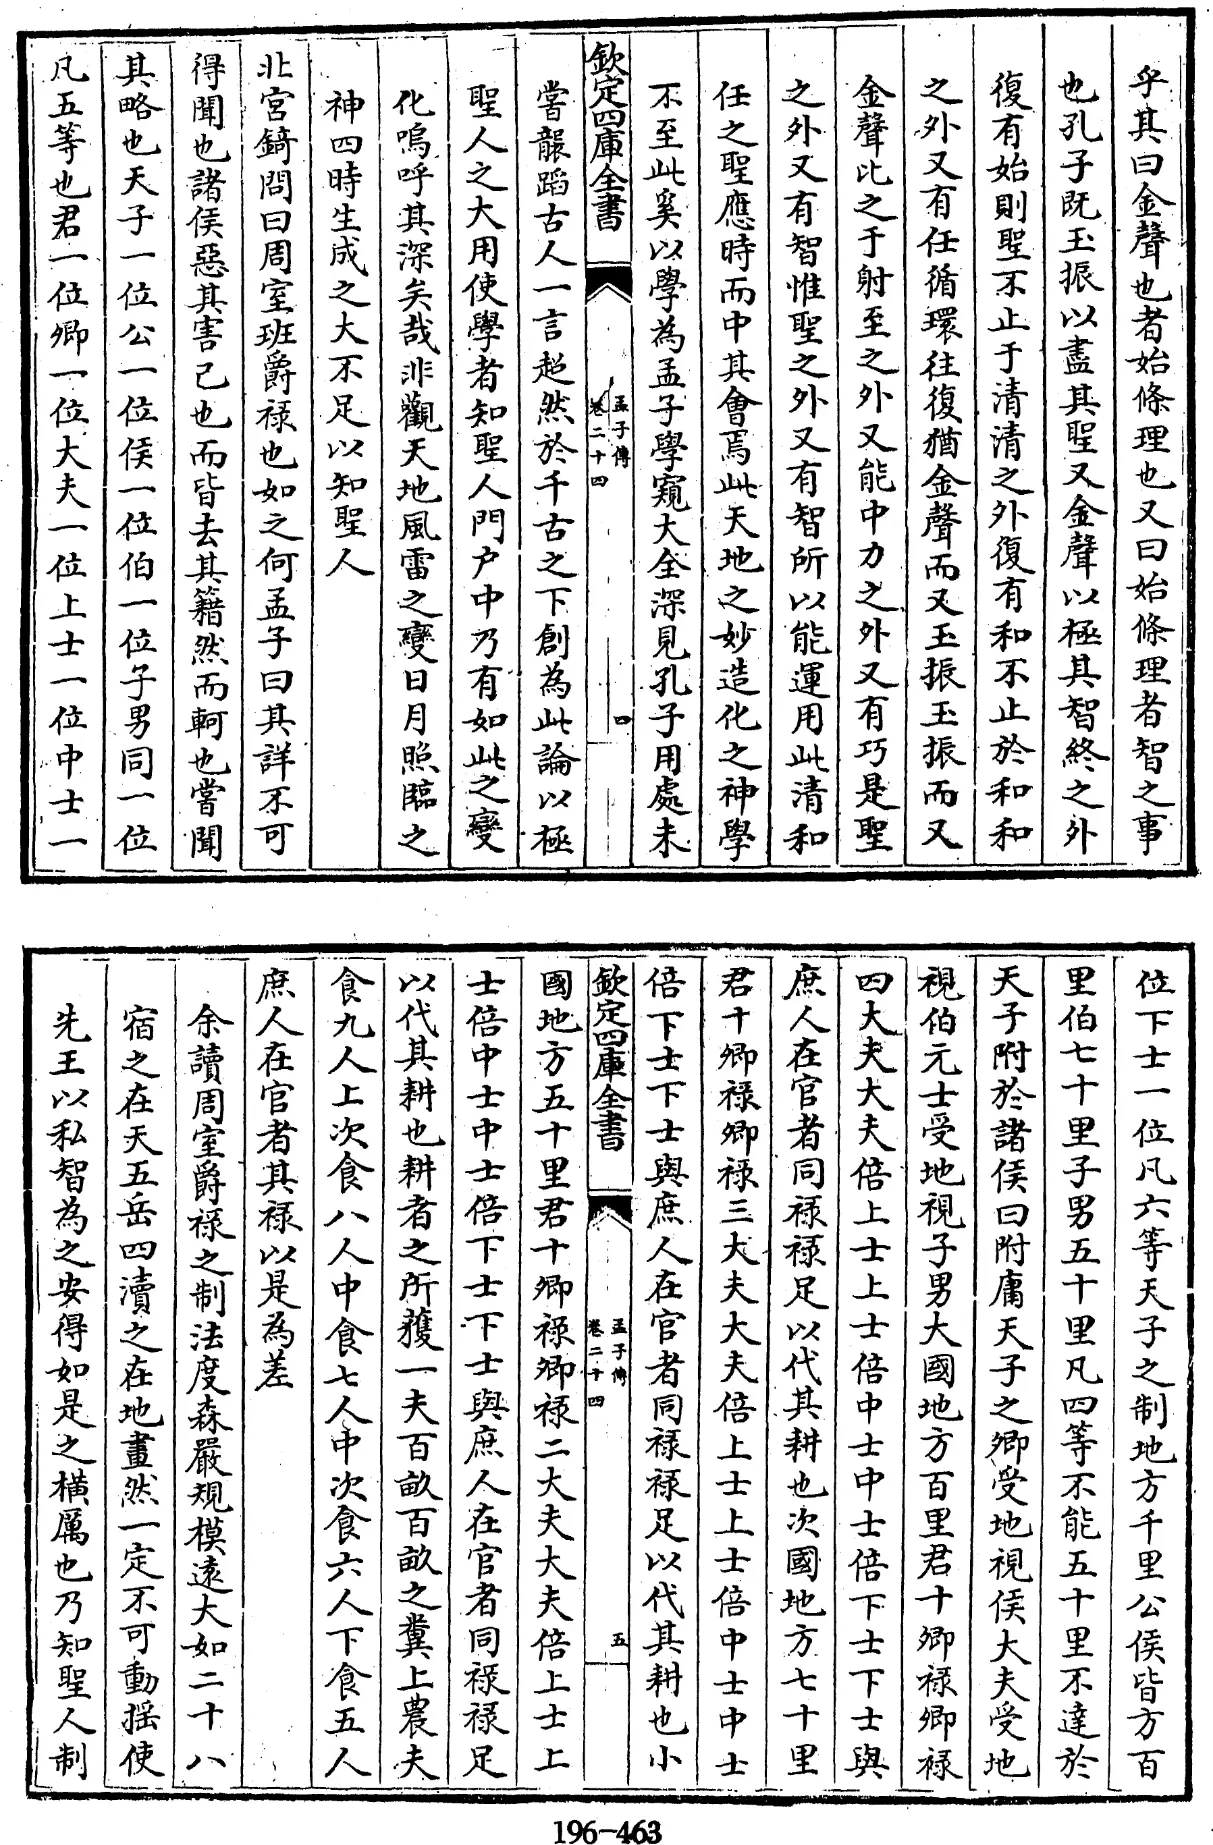 乎其曰金聲也者始條理也又曰始條理者智之事
也孔子既玉振以盡其聖又金聲以極其智終之外
復有始則聖不止于清清之外復有和不止於和和
之外又有任循環往復猶金聲而又玉振玉振而又
金聲比之于射至之外又能中力之外又有巧是聖
之外又有智惟聖之外又有智所以能運用此清和
任之聖應時而中其會焉此天地之妙造化之神學
不至此奚以學為孟子學窺大全深見孔子用處未
欽定四庫全書
孟子傳
卷二十四
四
嘗襲蹈古人一言超然於千古之下創為此論以極
聖人之大用使學者知聖人門户中乃有如此之變
化嗚呼其深矣哉非觀天地風雷之變日月照臨之
神四時生成之大不足以知聖人
北宮錡問曰周室班爵禄也如之何孟子曰其詳不可
得聞也諸侯惡其害己也而皆去其籍然而軻也嘗聞
其略也天子一位公一位侯一位伯一位子男同一位
凡五等也君一位卿一位大夫一位上士一位中士一
位下士一位凡六等天子之制地方千里公侯皆方百
里伯七十里子男五十里凡四等不能五十里不達於
天子附於諸侯曰附庸天子之卿受地視侯大夫受地
視伯元士受地視子男大國地方百里君十卿禄卿禄
四大夫大夫倍上士上士倍中士中士倍下士下士與
庶人在官者同禄禄足以代其耕也次國地方七十里
君十卿禄卿禄三大夫大夫倍上士上士倍中士中士
倍下士下士與庶人在官者同禄禄足以代其耕也小
欽定四庫全書
孟子傳
卷二十四
五
國地方五十里君十卿禄卿禄二大夫大夫倍上士上
士倍中士中士倍下士下士與庶人在官者同禄禄足
以代其耕也耕者之所獲一夫百畝百畝之糞上農夫
食九人上次食八人中食七人中次食六人下食五人
庶人在官者其禄以是為差
余讀周室爵禄之制法度森嚴規模遠大如二十八
宿之在天五岳四瀆之在地畫然一定不可動揺使
先王以私智為之安得如是之橫厲也乃知聖人制
196-463